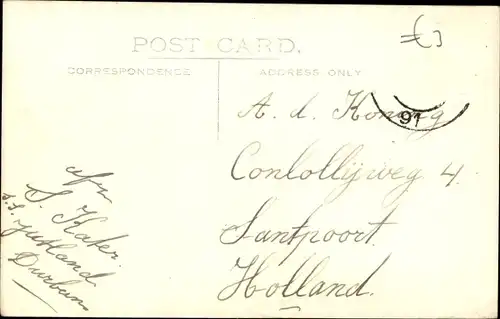 POST CARD.
CORRESPONDENCE
ADDRESS ONLY
91
A. d. Koning
Conlollijweg 4.
Santpoort.
Holland.
afz
S. Kater.
s.s. Jutland
Durban